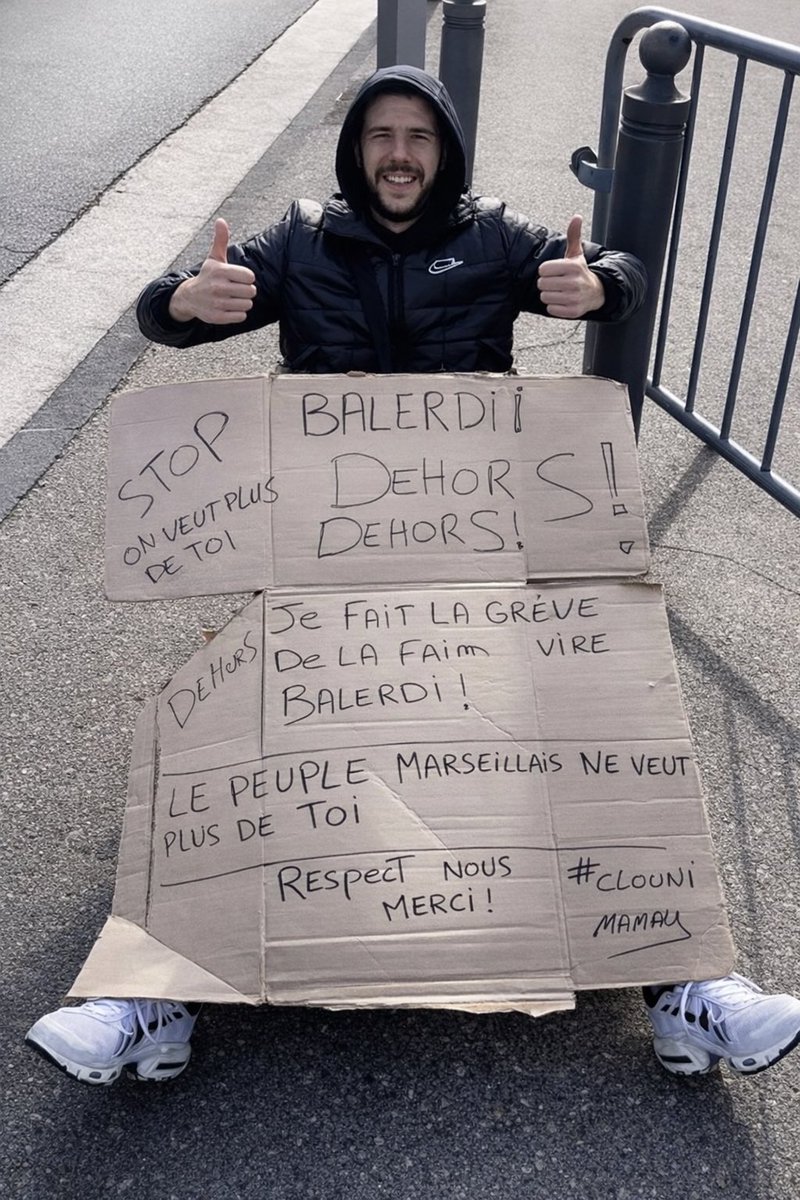 STOP
ON VEUT PLUS
DE TOI
BALERDii
DEHORS!
DEHORS!
DEHORS
Je FAiT LA GRÉVE
De LA FAim VIRE
BALERDi!
LE PEUPLE MARSEiLLAiS NE VEUT
PLUS DE TOi
RespecT NOUS
MERCi!
#CLOUNi
MAMAU